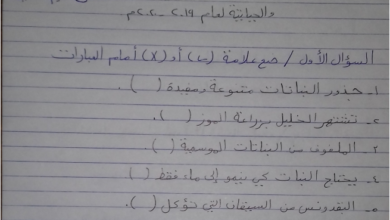 والحياتية لعام ٢٠١٩ - ٢٠٢٠م
السؤال الأول / ضع علامة (✓) أو (X) أمام العبارات
١- جذور النباتات متنوعة ومفيدة ( ).
٢- تشتهر الخليل بزراعة الموز ( ).
٣- الملفوف من النباتات الموسمية ( ).
٤- يحتاج النبات كي ينمو إلى ماء فقط ( ).
٥- البقدونس من السيقان التي تؤكل ( ).